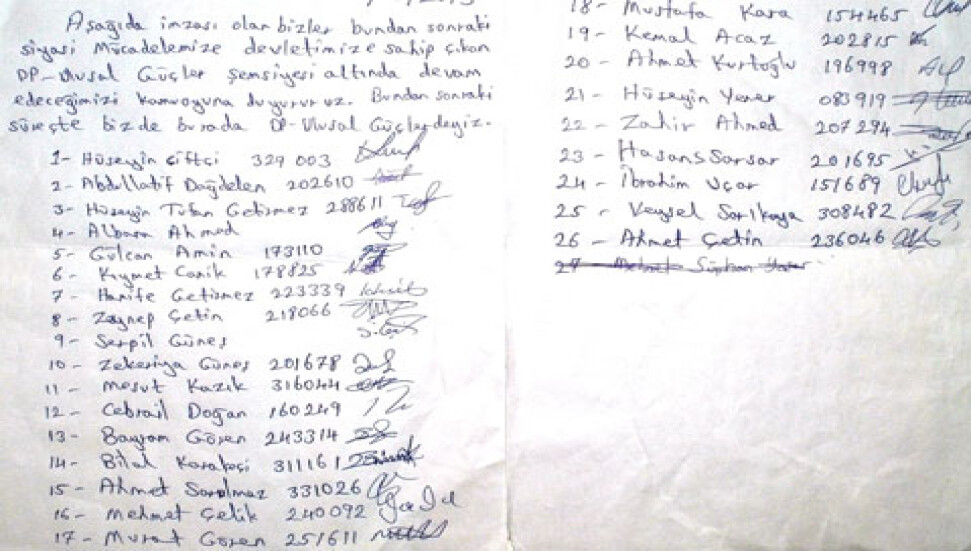 Aşağıda imzası olan bizler bundan sonraki
siyasi Mücadelemize devletimize sahip çıkan
DP-Ulusal Güçler şemsiyesi altında devam
edeceğimizi kamuoyuna duyururuz. Bundan sonraki
süreçte bizde burada DP-Ulusal Güçlerdeyiz.
1- Hüseyin Çiftçi 329 003
2- Abdullatif Dağdelen 202610
3- Hüseyin Tufan Getirmez 288611
4- Albara Ahmed
5- Gülcan Amin 173110
6- Kıymet Canik 178825
7- Hanife Getirmez 223339
8- Zeynep Çetin 218066
9- Serpil Güneş
10- Zekeriya Güneş 201678
11- Mesut Kazık 316044
12- Cebrail Doğan 160249
13- Bayram Gören 243314
14- Bilal Karakeçi 311161
15- Ahmet Sarılmaz 331026
16- Mehmet Çelik 240092
17- Murat Gören 251611
18- Mustafa Kara 154465
19- Kemal Acaz 202815
20- Ahmet Kurtoğlu 196998
21- Hüseyin Yener 083919
22- Zahir Ahmed 207294
23- Hasan Sarsar 201695
24- İbrahim Uçar 151689
25- Veysel Sarıkaya 308482
26- Ahmet Çetin 236046
27- Mehmet Süphan